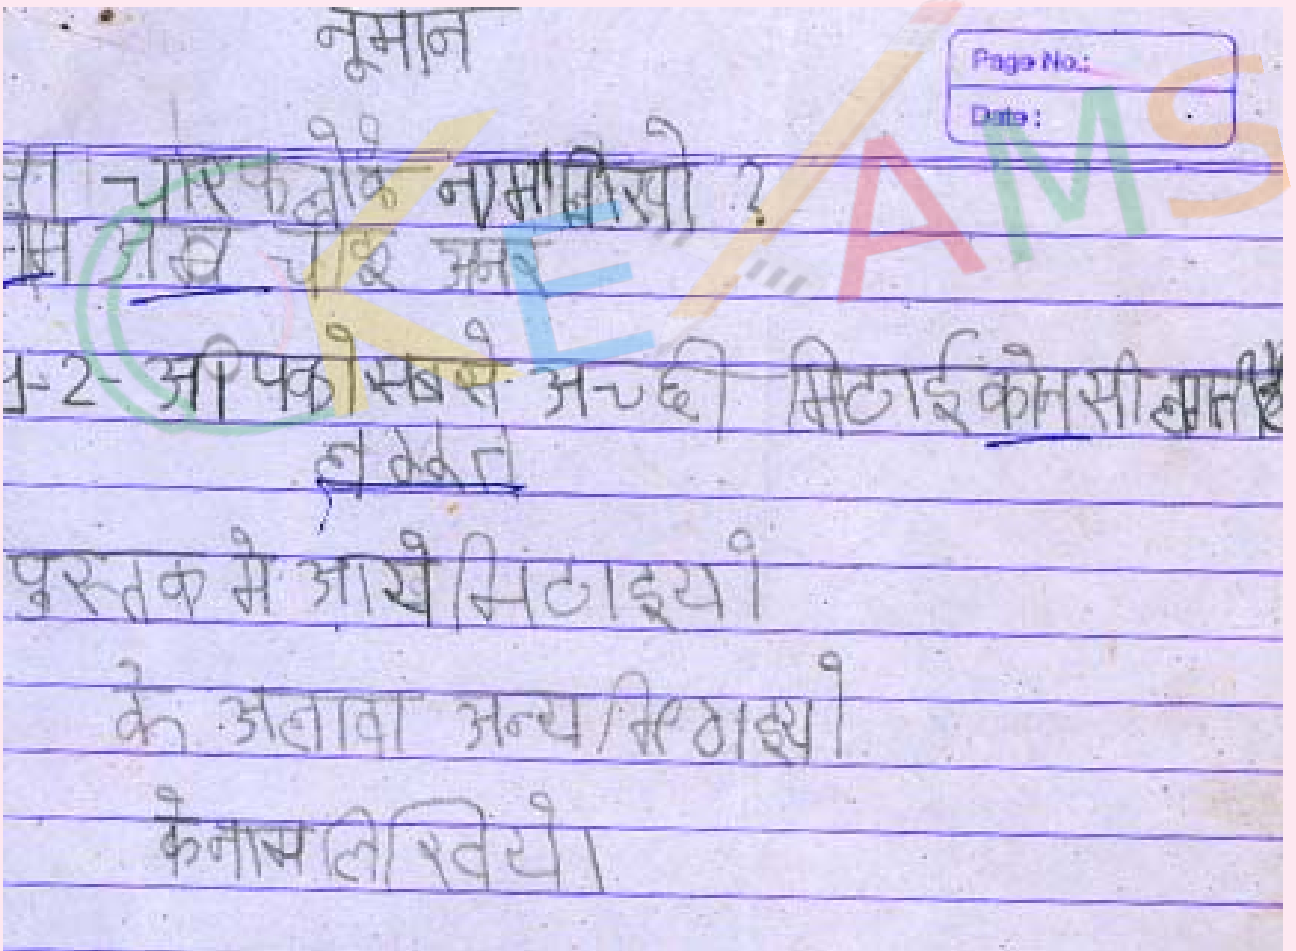 नूमान
Page No.:
Date:
चार फलोके नाम लिखो ?
2- आपको सबसे अच्छी मिठाई कोनसी लगती है
पुस्तक मे आये मिठाइयो
के अलावा अन्य मिठाइयो
के नाम लिखिये।
KEAMS